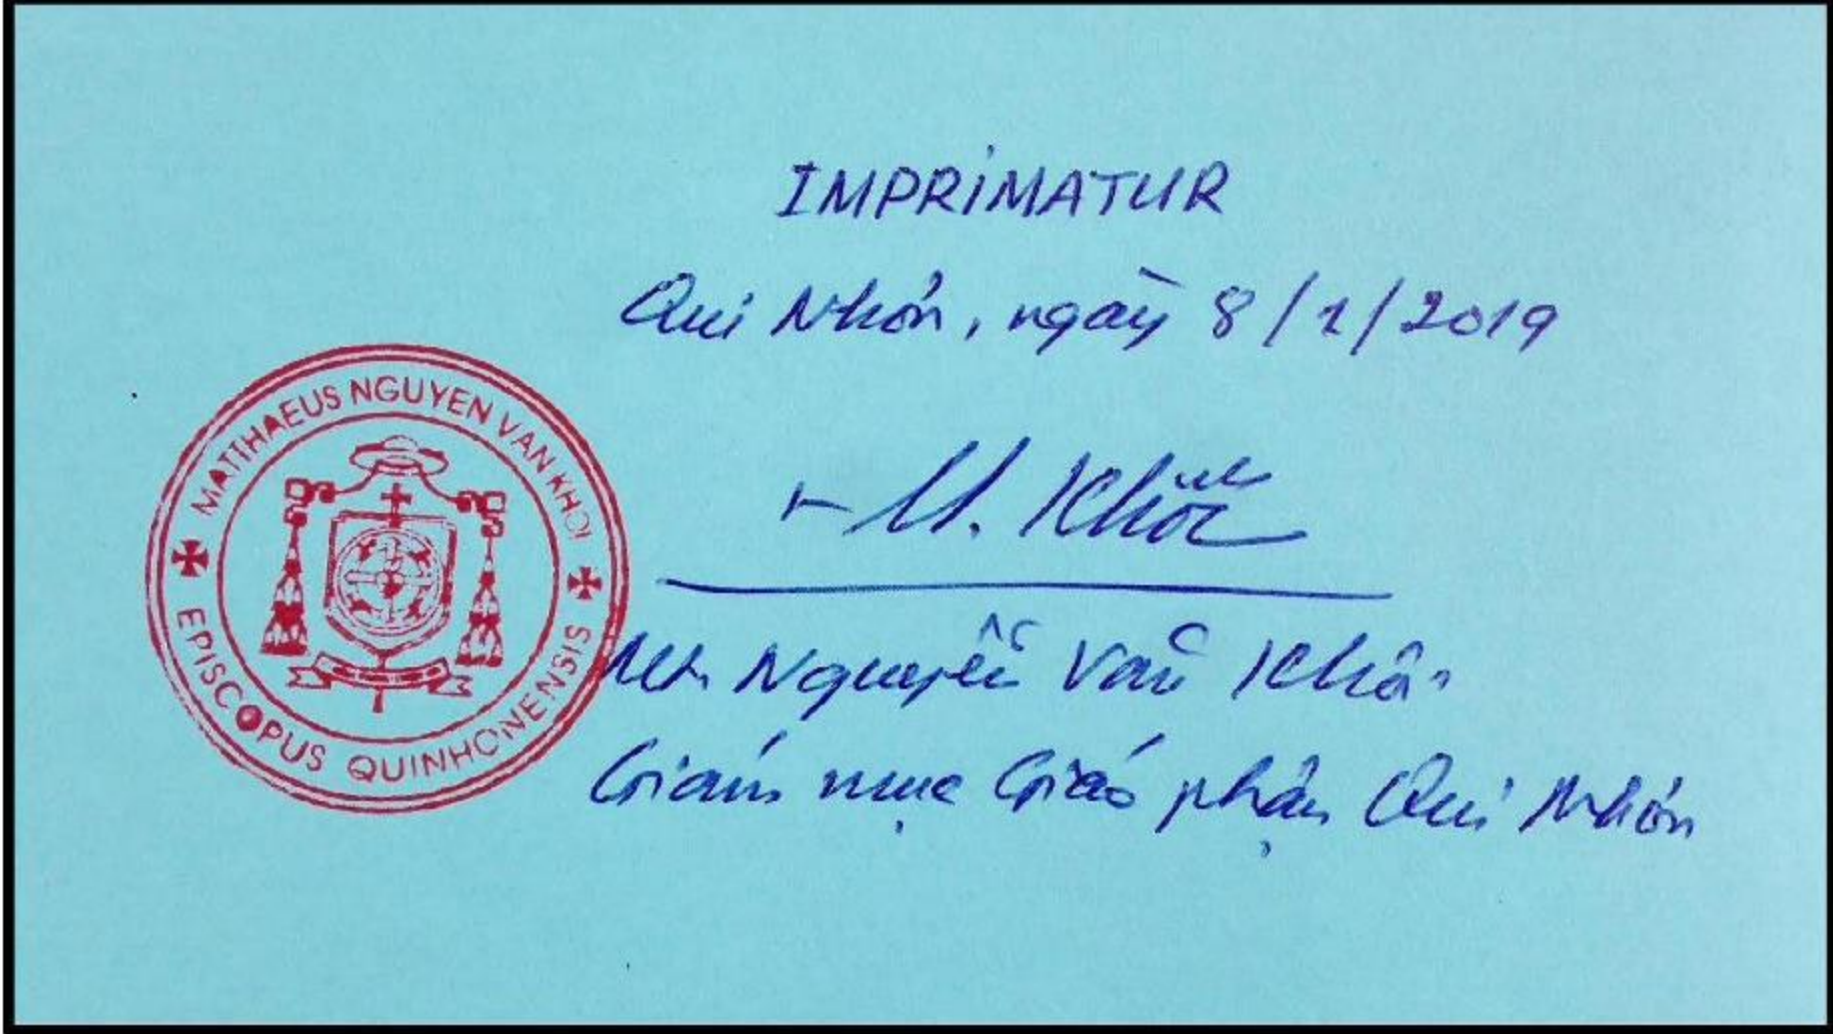 IMPRIMATUR
Qui Nhơn, ngày 8/1/2019
M. Khôi
MATTHAEUS NGUYEN VAN KHOI
EPISCOPUS QUINHONENSIS
Mt. Nguyễn Văn Khôi
Giám mục Giáo phận Qui Nhơn